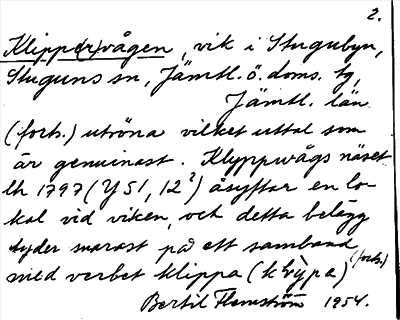 2.
Klipp(er)vågen, vik i Stugubyn,
Stuguns sn, Jämtl. ö. doms. tg,
Jämtl. län
(forts.) utröna vilket uttal som
är genuinast. Klyppwågs näset
lh 1797 (Y51, 12²) åsyftar en lo-
kal vid viken, och detta belägg
tyder snarast på ett samband
med verbet klippa (
(forts.)
Bertil Flemström 1954.